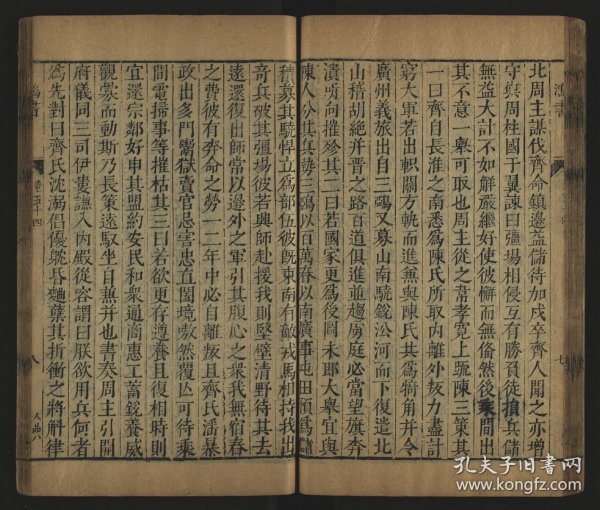 北周主謀伐齊命鎮邊益儲待加戍卒齊人聞之亦增
守禦周柱國于翼諫曰疆場相侵互有勝負徒損兵儲
無益大計不如解嚴繼好使彼懈而無備然後乘間出
其不意一舉可取也周主從之韋孝寬上疏陳三策其
一曰齊自長淮之南悉為陳氏所取內離外叛力盡計
窮大軍若出軹關方軌而進兼與陳氏共為犄角并令
廣州義旅出自三鵶又募山南驍銳沿河而下復遣北
山稽胡絶并晉之路百道俱進並趨虜庭必當望旗奔
潰所向摧殄其二曰若國家更為後圖未即大舉宜與
陳人分其兵勢三鵶以北萬春以南廣事屯田預為儲
積募其驍悍立為部伍彼既東南有敵戎馬相持我出
竒兵破其疆場彼若興師赴援我則堅壁清野待其去
遠還復出師常以邊外之軍引其腹心之衆我無宿舂
之費彼有奔命之勞一二年中必自離叛且齊氏淫暴
政出多門鬻獄賣官忌害忠直闔境嗷然覆亾可待乘
間電掃事等摧枯其三曰若欲更存遵養且復相時則
宜還宗鄰好申其盟約安民和衆通商惠工蓄銳養威
觀釁而動斯乃長策遠馭坐自兼并也書奏周主引開
府儀同三司伊婁謙入內殿從容謂曰朕欲用兵何者
為先對曰齊氏沈溺倡優躭昏麴蘖其折衝之將斛律
鴻書
七
卷五十四
八
人品八
孔夫子旧书网
www.kongfz.com